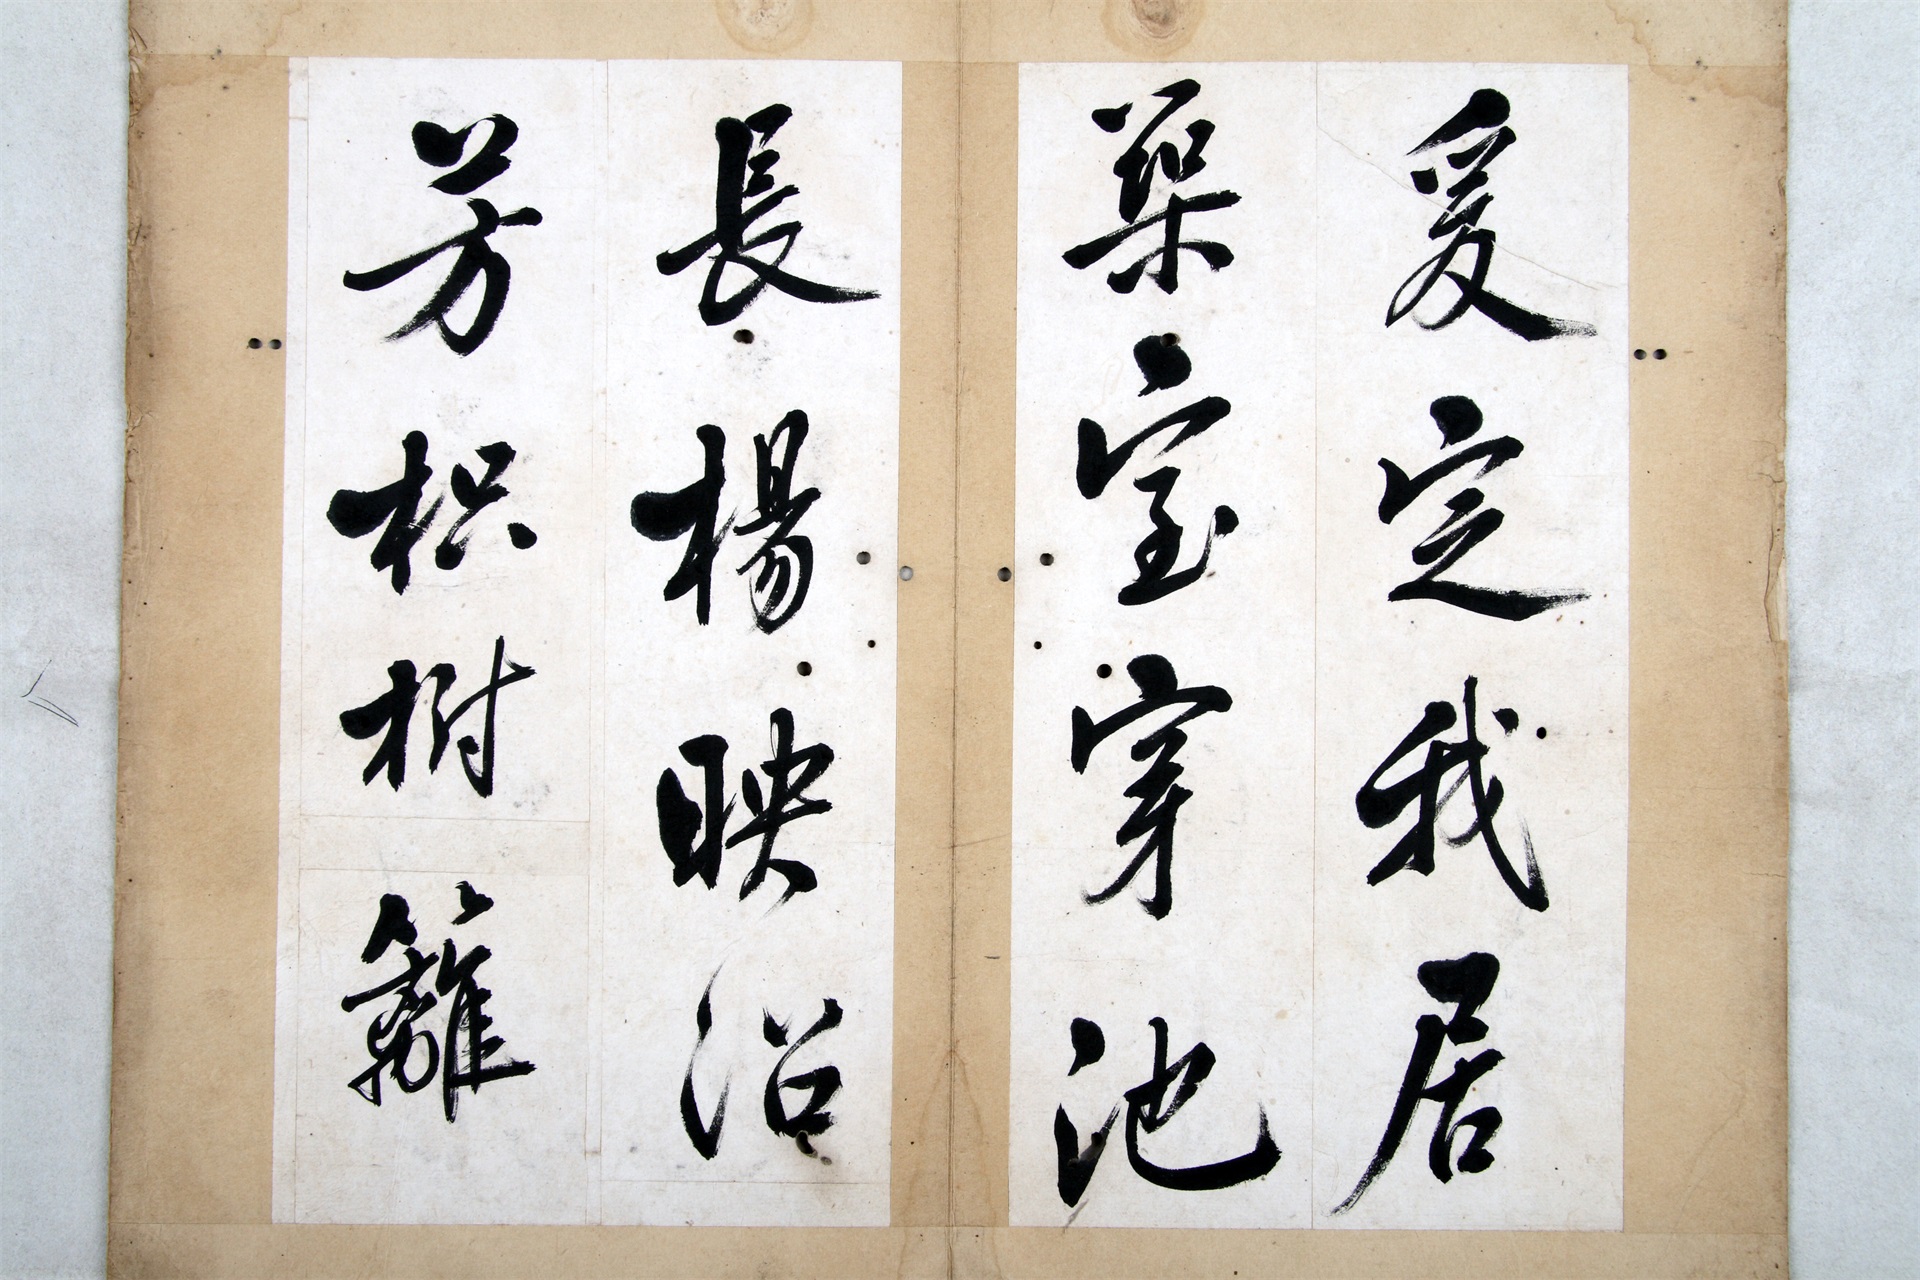 爰定我居
築室穿池
長楊映沼
芳枳樹籬